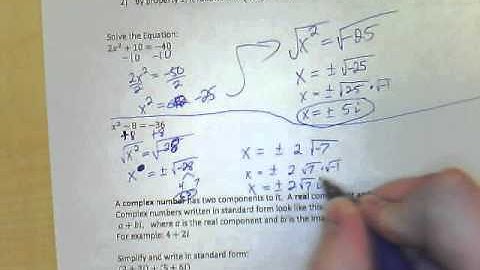 2) By property
Solve the Equation:
2x² + 10 = -40
-10 -10
2x² = -50
2 2
x² = -25
√x² = √-25
x = ± √-25
x = ± √25 · √-1
x = ± 5i
x² - 8 = -36
+8 +8
√x² = √-28
x = ± √-28
x = ± 2 √-7
x = ± 2 √7 · √-1
x = ± 2√7 i
A complex number has two components to it. A real
Complex numbers written in standard form look like this:
a + bi, where a is the real component and b is the
For example: 4 + 2i
Simplify and write in standard form: